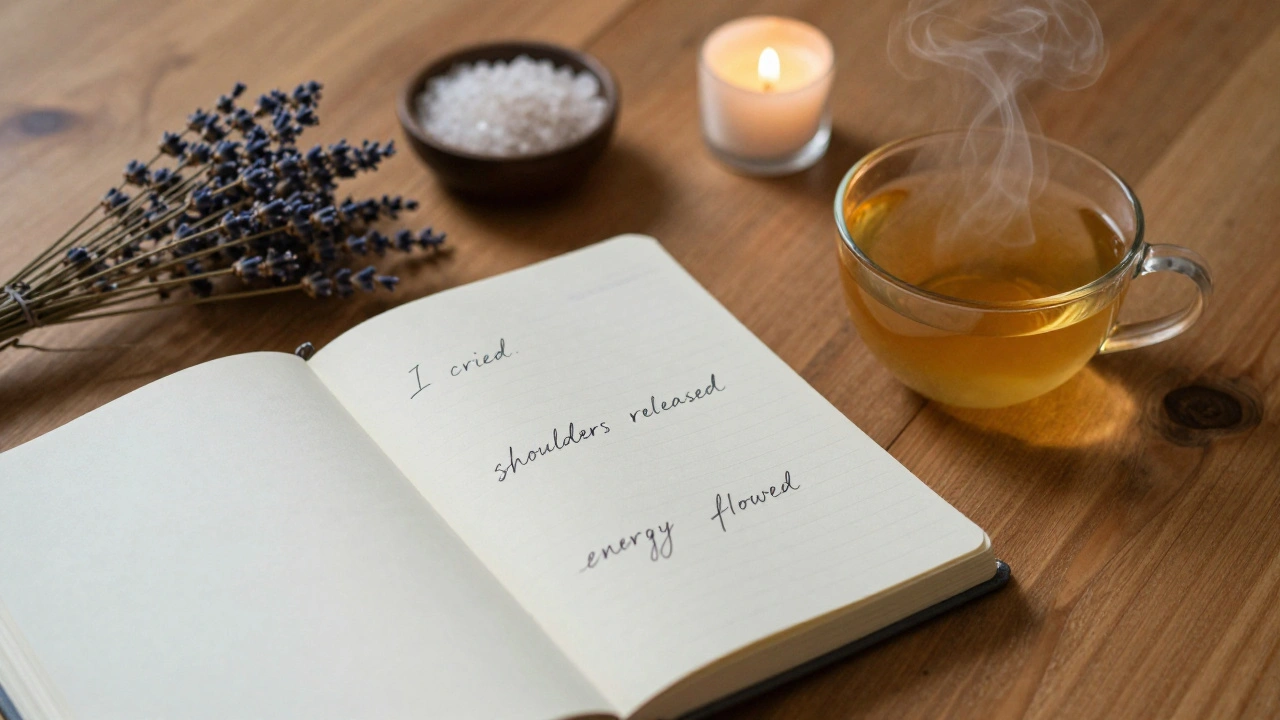 I cried.
shoulders released
energy flowed